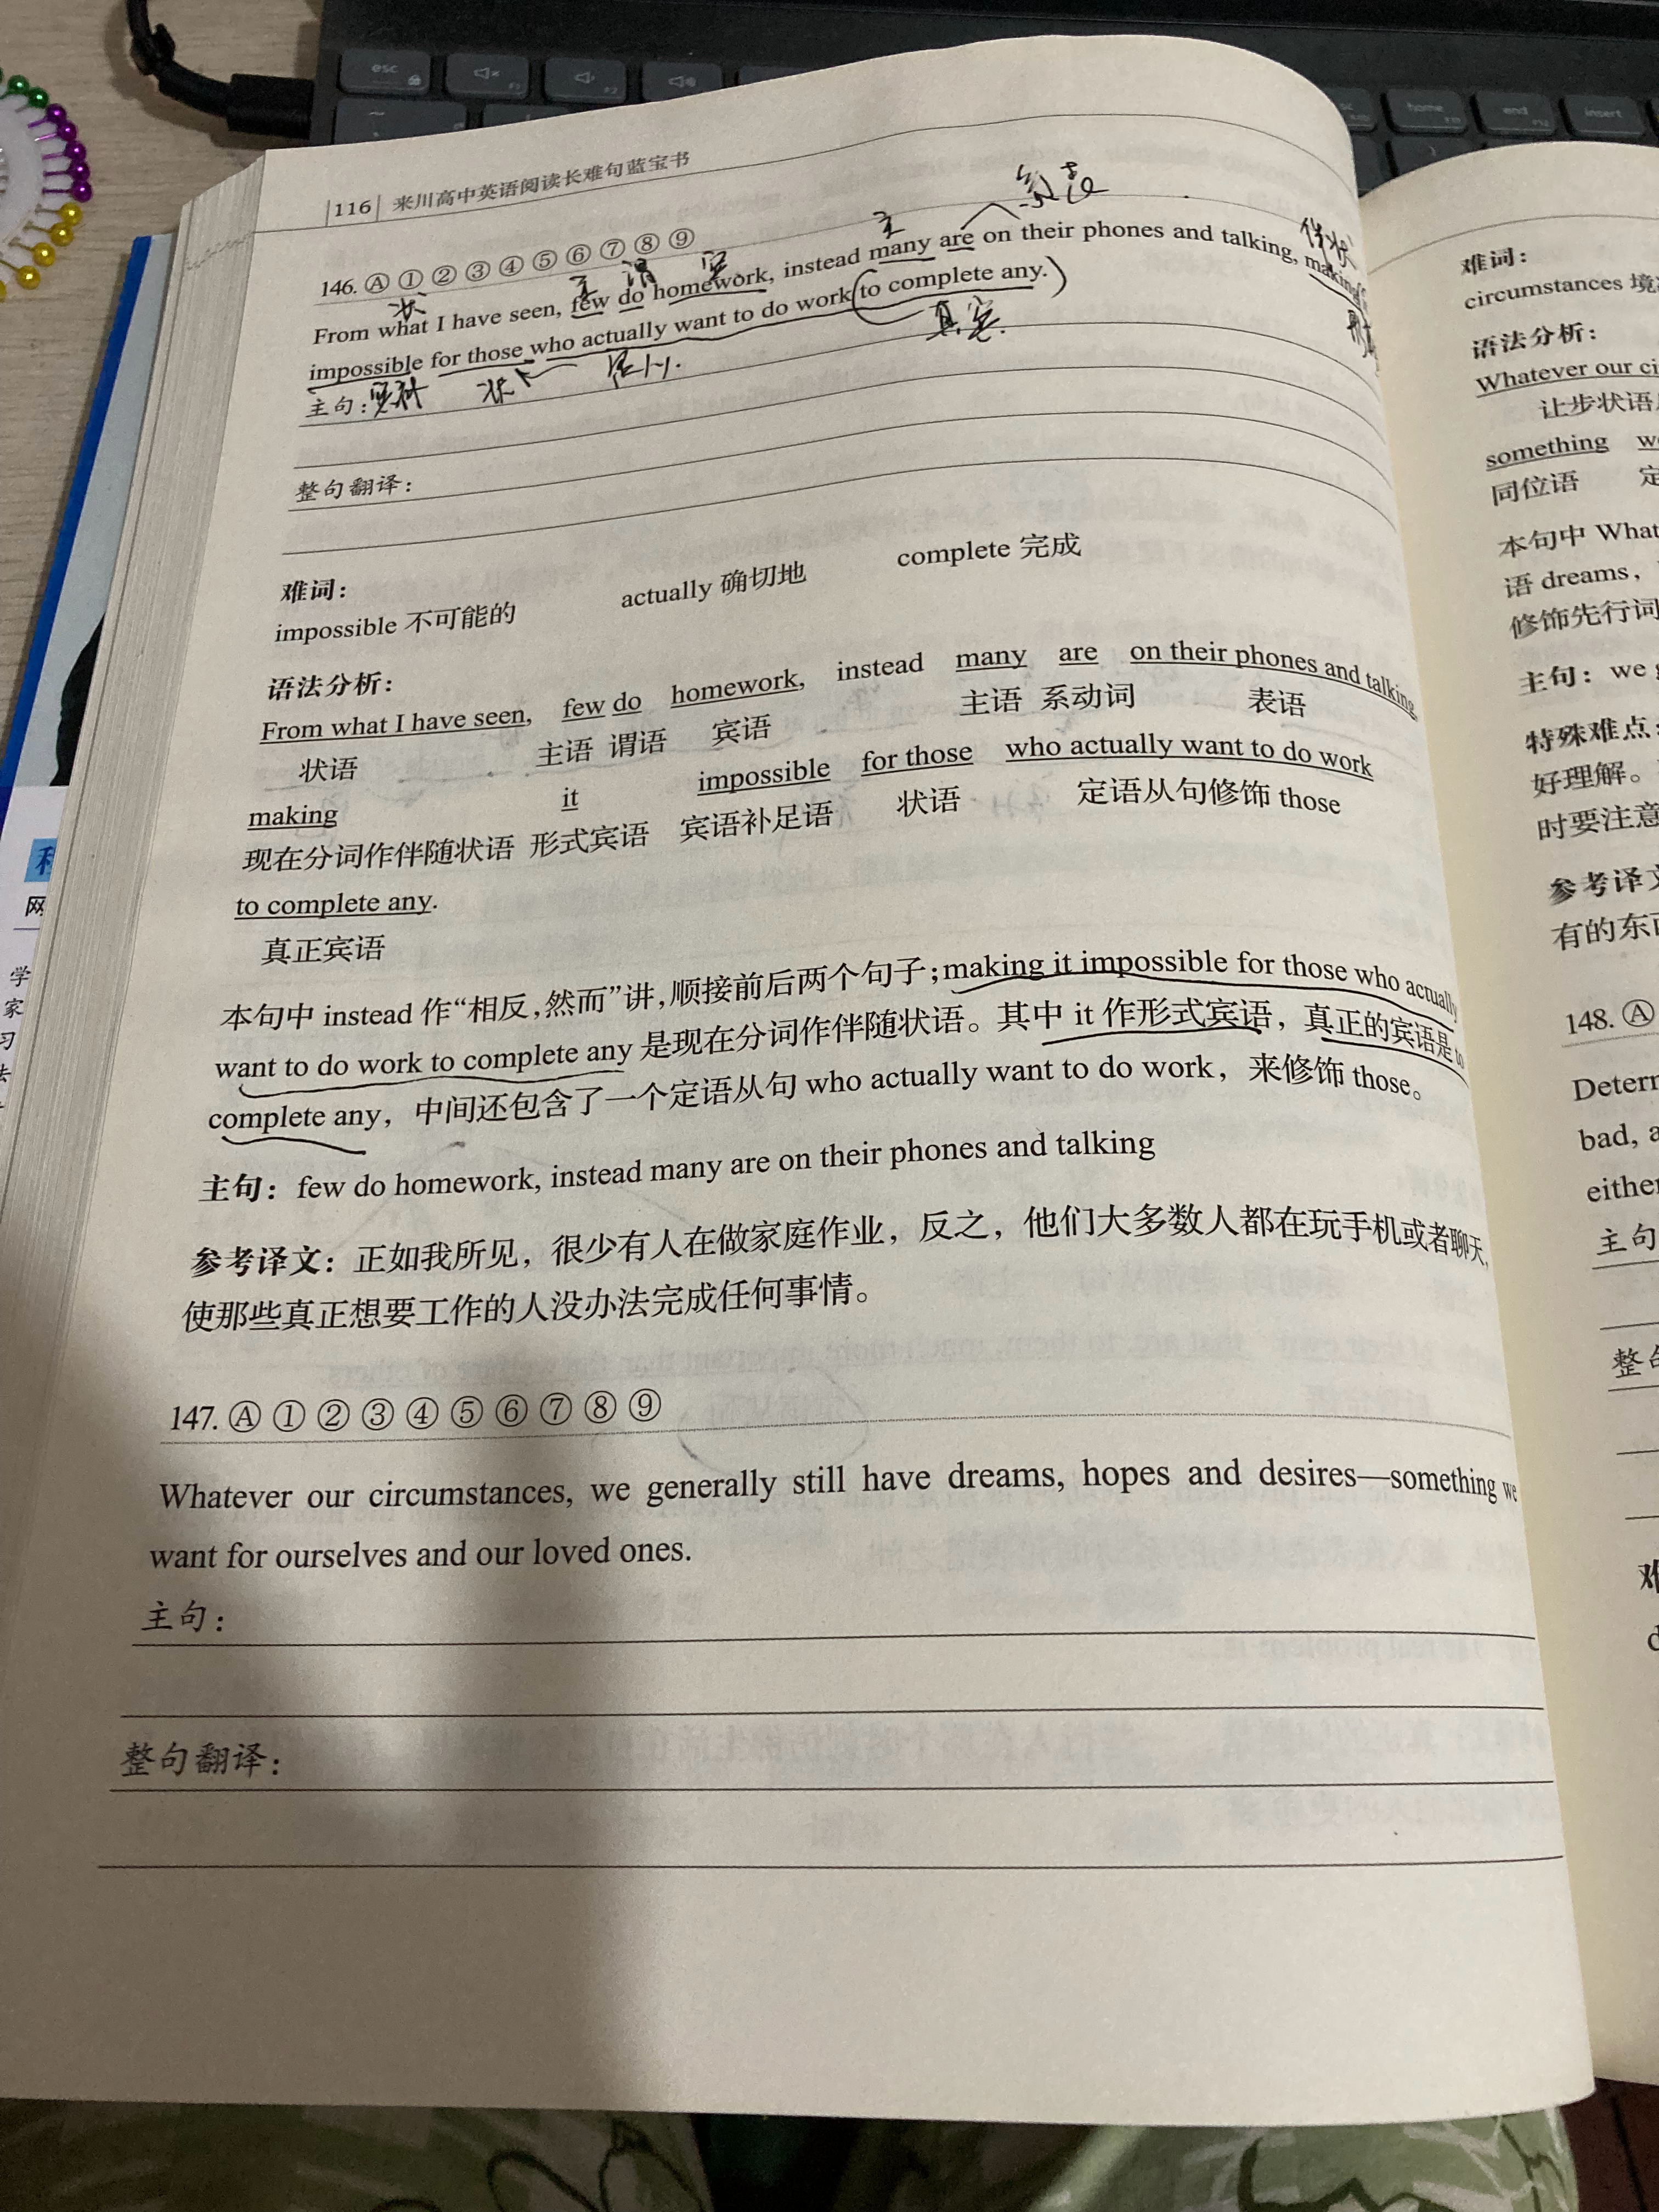 esc
home
end
insert
|116| 来川高中英语阅读长难句蓝宝书
146. Ⓐ ① ② ③ ④ ⑤ ⑥ ⑦ ⑧ ⑨
状 主 谓 宾 主
From what I have seen, few do homework, instead many are on their phones and talking, making
impossible for those who actually want to do work (to complete any.)
真宾.
状
主句：
整句翻译：
难词：
impossible 不可能的 actually 确切地 complete 完成
语法分析：
From what I have seen, few do homework, instead many are on their phones and talking,
状语 主语 谓语 宾语 主语 系动词 表语
making it impossible for those who actually want to do work
现在分词作伴随状语 形式宾语 宾语补足语 状语 定语从句修饰 those
to complete any.
真正宾语
本句中 instead 作“相反，然而”讲，顺接前后两个句子；making it impossible for those who actually
want to do work to complete any 是现在分词作伴随状语。其中 it 作形式宾语，真正的宾语是 to
complete any，中间还包含了一个定语从句 who actually want to do work，来修饰 those。
主句：few do homework, instead many are on their phones and talking
参考译文：正如我所见，很少有人在做家庭作业，反之，他们大多数人都在玩手机或者聊天，
使那些真正想要工作的人没办法完成任何事情。
147. Ⓐ ① ② ③ ④ ⑤ ⑥ ⑦ ⑧ ⑨
Whatever our circumstances, we generally still have dreams, hopes and desires—something we
want for ourselves and our loved ones.
主句：
整句翻译：
难词：
circumstances 境
语法分析：
Whatever our ci
让步状语
something
同位语 定
本句中 What
语 dreams，
修饰先行词
主句：we
特殊难点：
好理解。
时要注意
参考译文
有的东
148. Ⓐ
Determ
bad, a
either
主句
整句
难
学
家
习
网